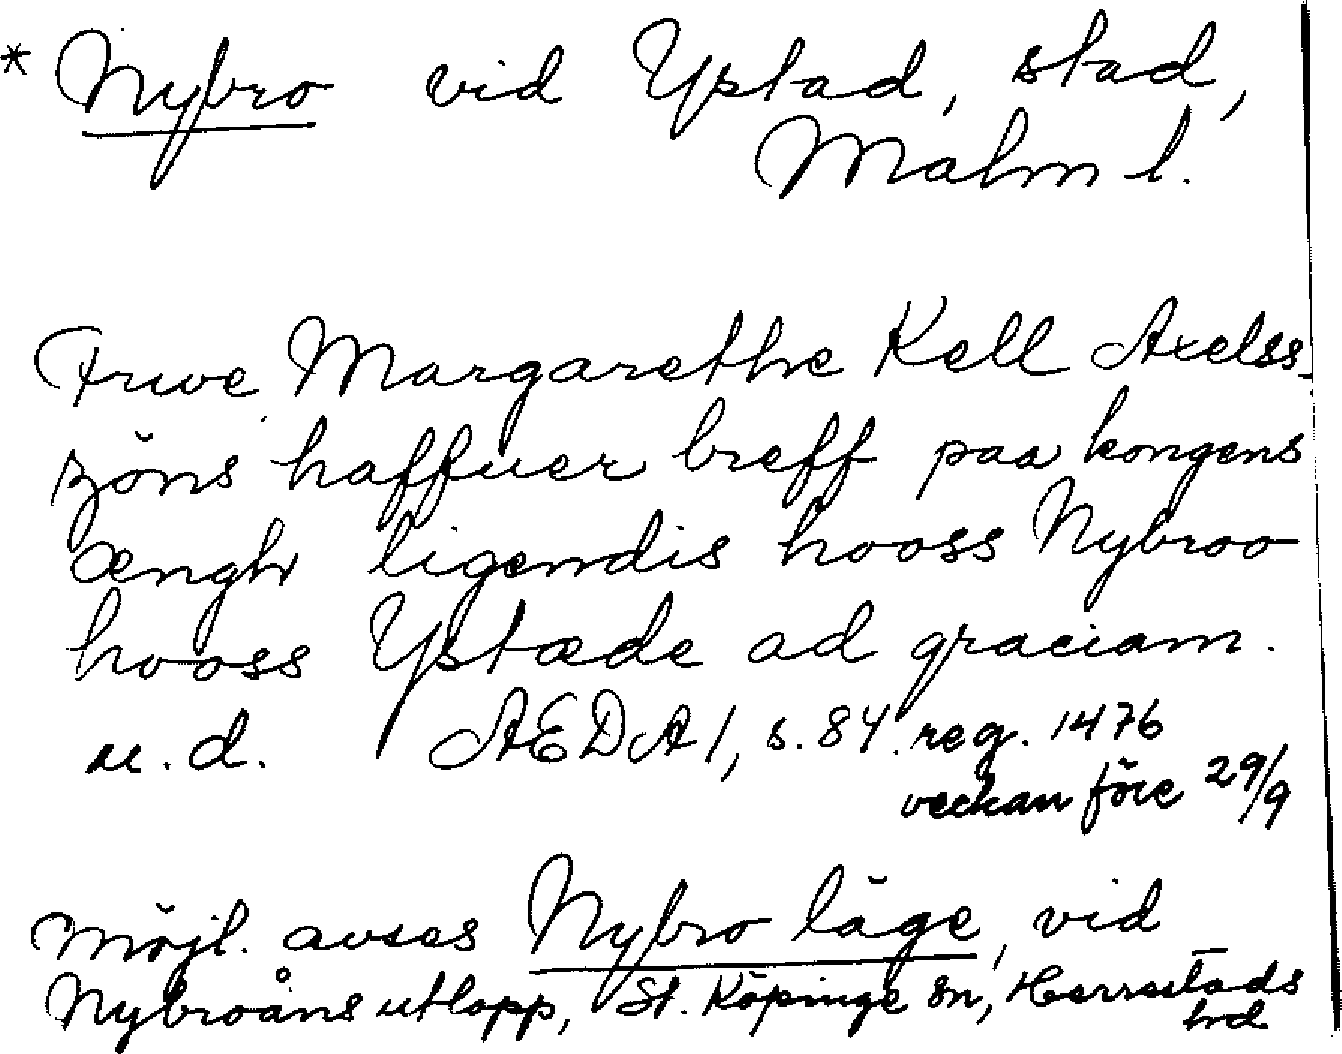 * Nybro vid Ystad, stad,
Malm l.
Fruve Margarethe Kell Axelss-
zöns haffuer breff paa kongens
ængh ligendis hooss Nybroo
hooss Ystæde ad graciam.
u.d. AEDA 1, s. 84. reg. 1476
veckan före 29/9
Möjl. avses Nybro läge, vid
Nybroåns utlopp, St. Köpinge sn, Herrestads
hd